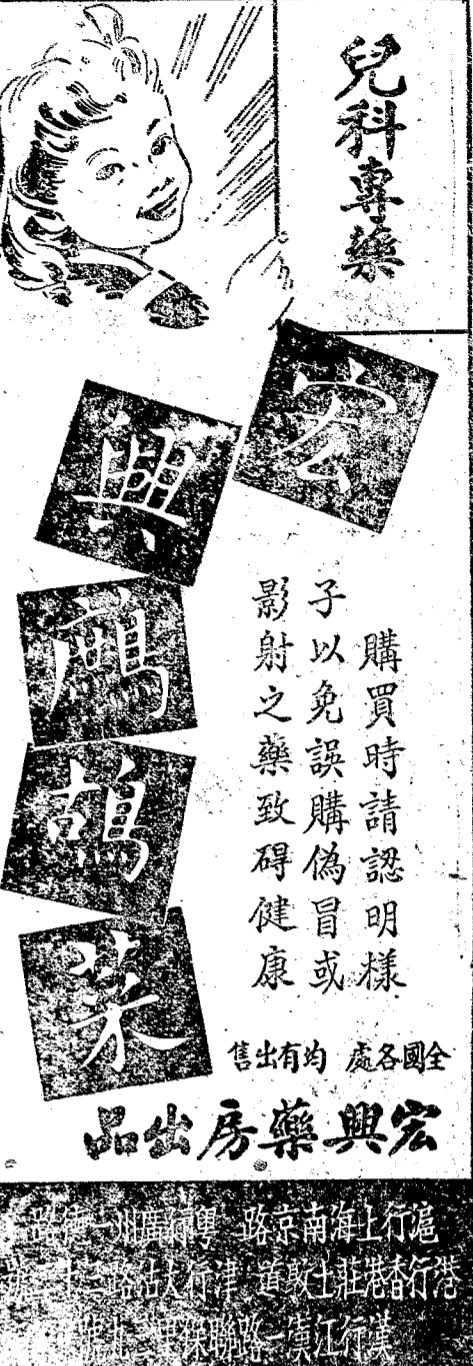 兒科專藥
宏興鷓鴣菜
購買時請認明樣
子以免誤購偽冒或
影射之藥致碍健康
全國各處 均有出售
宏興藥房出品
滬行上海南京路 粵行廣州一德路
港行香港莊士敦道 津行大沽路
漢行江漢一路聯保里